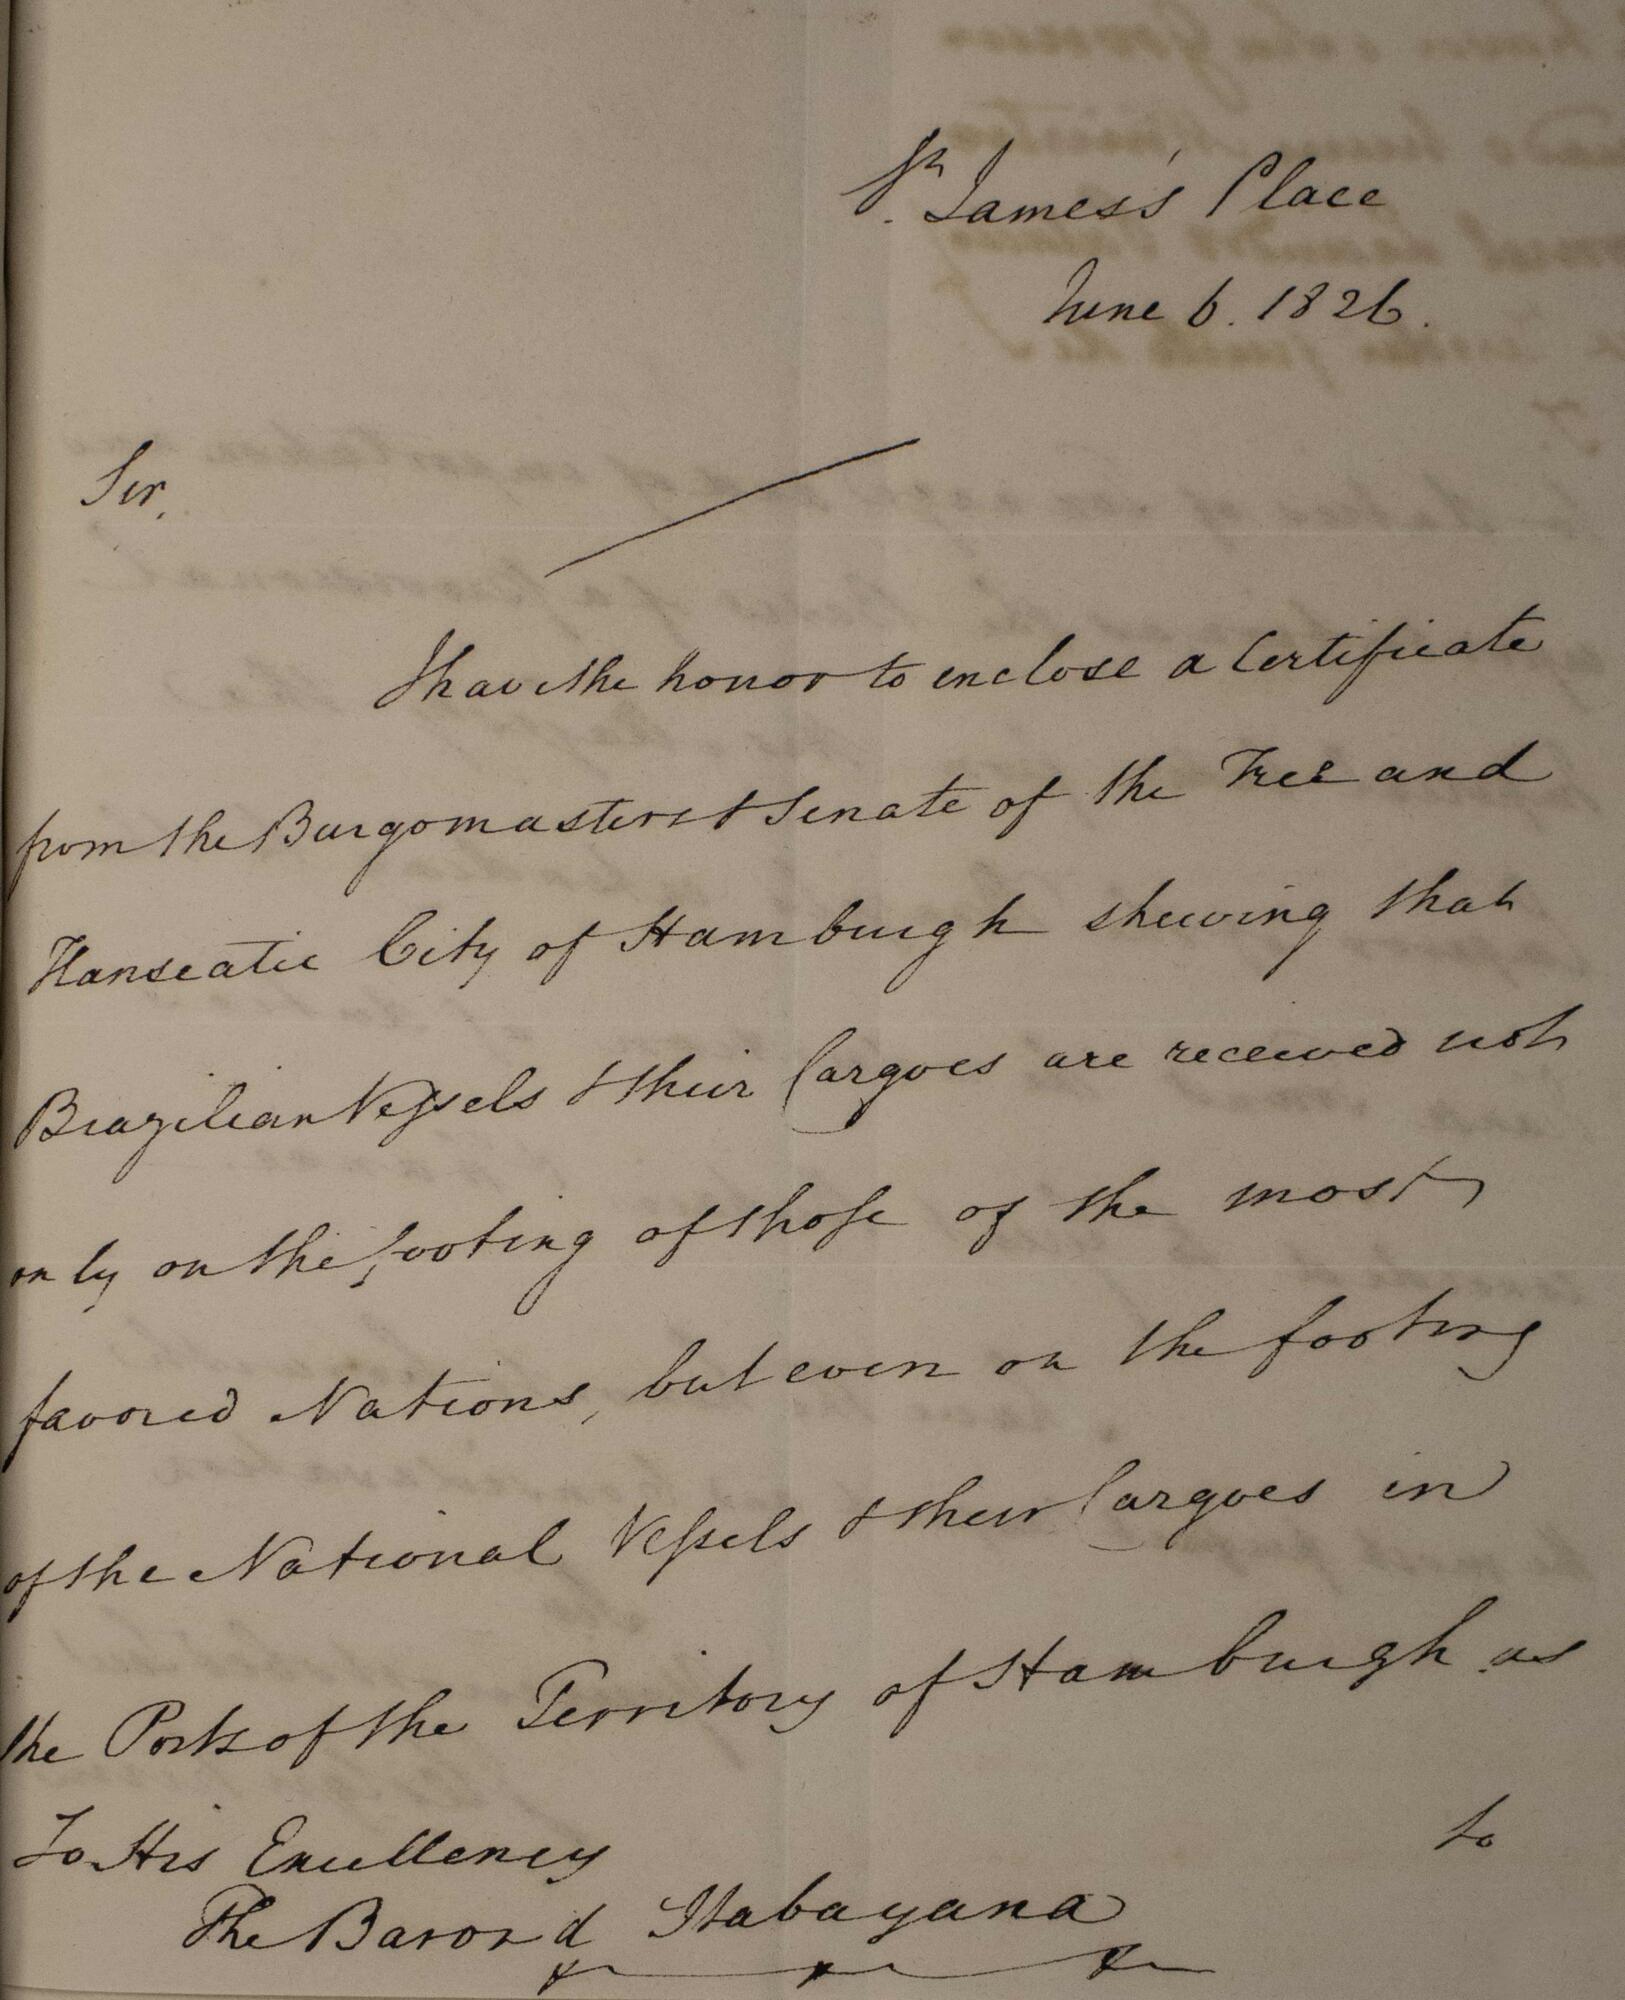 St. James's Place
June 6. 1826.
Sir,
I have the honor to enclose a Certificate
from the Burgomasters & Senate of the Free and
Hanseatic City of Hamburgh shewing that
Brazilian Vessels & their Cargoes are received not
only on the footing of those of the most
favored Nations, but even on the footing
of the National Vessels & their Cargoes in
the Ports of the Territory of Hamburgh as
to
To His Excellency
The Baron d Itabayana